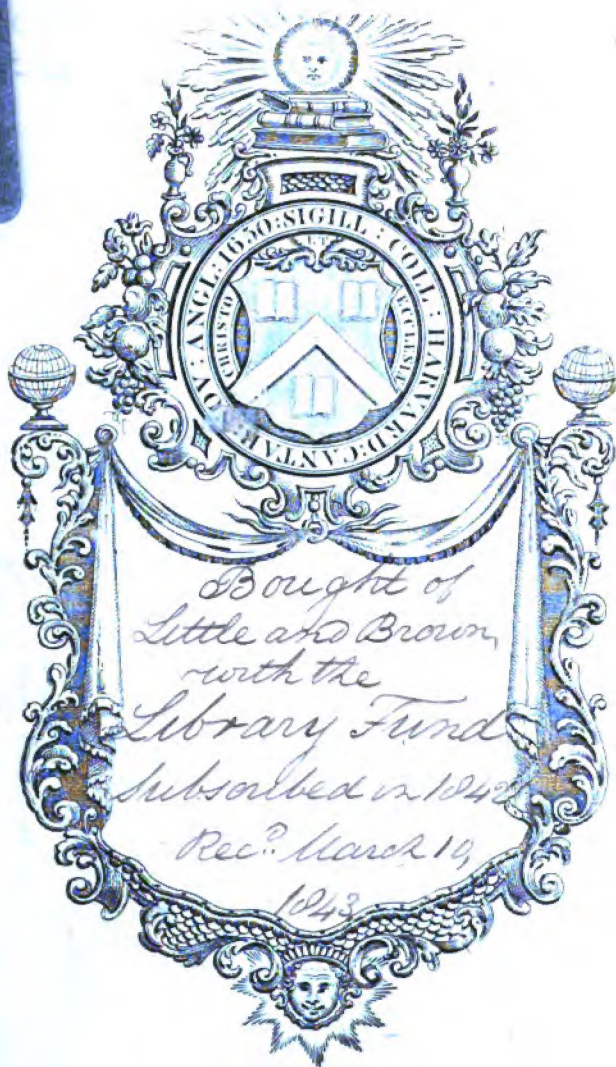 SIGILL : COLL : HARVARD : CANTAB : NOV : ANGL : 1650 :
CHRISTO
ET
ECCLESIÆ
Bought of
Little and Brown,
with the
Library Fund
Subscribed in 1842
Rec.d March 19,
1843